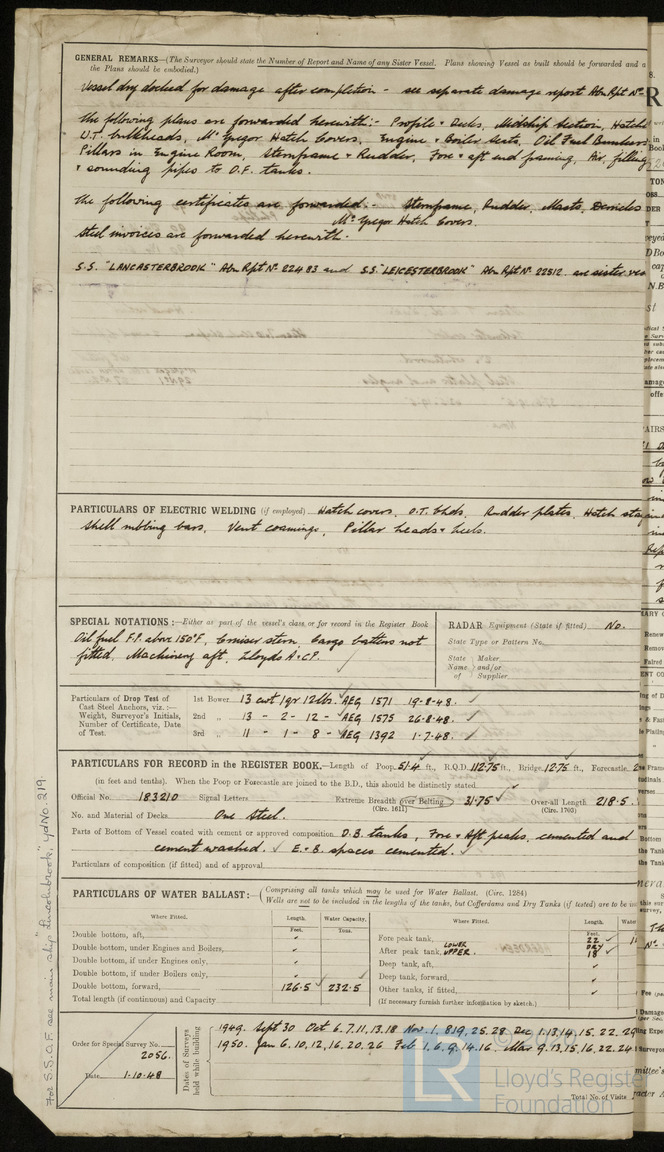 GENERAL REMARKS—(The Surveyor should state the Number of Report and Name of any Sister Vessel. Plans showing Vessel as built should be forwarded and a
the Plans should be embodied.)
Vessel dry docked for damage after completion - see separate damage report Abn. Rpt No
The following plans are forwarded herewith:- Profile & Decks, Midship Section, Hatch
W.T. bulkheads, McGregor Hatch Covers, Engine & Boiler Seats, Oil Fuel Bunkers
Pillars in Engine Room, Sternframe & Rudder, Fore & aft end framing, Air, filling
& sounding pipes to O.F. tanks.
The following certificates are forwarded:- Sternframe, Rudder, Masts, Derricks
McGregor Hatch Covers.
Steel invoices are forwarded herewith.
S.S. "LANCASTERBROOK" Abn Rpt No 22483 and S.S. "LEICESTERBROOK" Abn Rpt No 22512 are sister ves
PARTICULARS OF ELECTRIC WELDING (if employed) Hatch covers, O.T. bhds, Rudder plates, Hatch
Shell rubbing bars, Vent coamings, Pillar heads & heels.
SPECIAL NOTATIONS:—Either as part of the vessel's class or for record in the Register Book
Oil fuel F.P. above 150°F, Cruiser stern, Cargo battens not
fitted, Machinery aft, Lloyds A & CP.
RADAR Equipment (State if fitted) No.
State Type or Pattern No.
State Name of Maker and/or Supplier
Particulars of Drop Test of Cast Steel Anchors, viz.:— Weight, Surveyor's Initials, Number of Certificate, Date of Test.
1st Bower 13 cwt 1 qr 12 lbs. AEG 1571 19-8-48.
2nd " 13 - 2 - 12 - AEG 1575 26-8-48.
3rd " 11 - 1 - 8 - AEG 1392 1-7-48.
PARTICULARS FOR RECORD in the REGISTER BOOK.—Length of Poop 51.4 ft., R.Q.D. 112.75 ft., Bridge 12.75 ft., Forecastle
(in feet and tenths). When the Poop or Forecastle are joined to the B.D., this should be distinctly stated
Official No. 183210 Signal Letters Extreme Breadth over Belting 31.75 Over-all Length 218.5
(Circ. 1611) (Circ. 1703)
No. and Material of Decks One Steel.
Parts of Bottom of Vessel coated with cement or approved composition D.B. tanks, Fore & Aft peaks, cemented and
cement washed. E & B. spaces cemented.
Particulars of composition (if fitted) and of approval
PARTICULARS OF WATER BALLAST:— Comprising all tanks which may be used for Water Ballast. (Circ. 1284)
Wells are not to be included in the lengths of the tanks, but Cofferdams and Dry Tanks (if tested) are to be in
Where Fitted. Length. Feet. Water Capacity. Tons.
Double bottom, aft,
Double bottom, under Engines and Boilers,
Double bottom, if under Engines only,
Double bottom, if under Boilers only,
Double bottom, forward, 126.5 232.5
Total length (if continuous) and Capacity
Where Fitted. Length. Feet. Water
Fore peak tank, 22
After peak tank, LOWER DRY
UPPER. 18
Deep tank, aft,
Deep tank, forward,
Other tanks, if fitted,
(If necessary furnish further information by sketch.)
Order for Special Survey No. 2056.
Date 1-10-48
Dates of Surveys held while building
1949. Sept 30 Oct 6.7.11.13.18 Nov. 1. 8 19, 25. 28 Dec 1.13,14,15,22. 29
1950. Jan 6.10,12,16.20.26 Feb 1.6.9.14.16. Mar 9.13,15,16,22.24
Total No. of Visits
For S.S. O.F. see main ship "Lincolnbrook" Yd No. 219
© 2020
LR
Lloyd's Register
Foundation